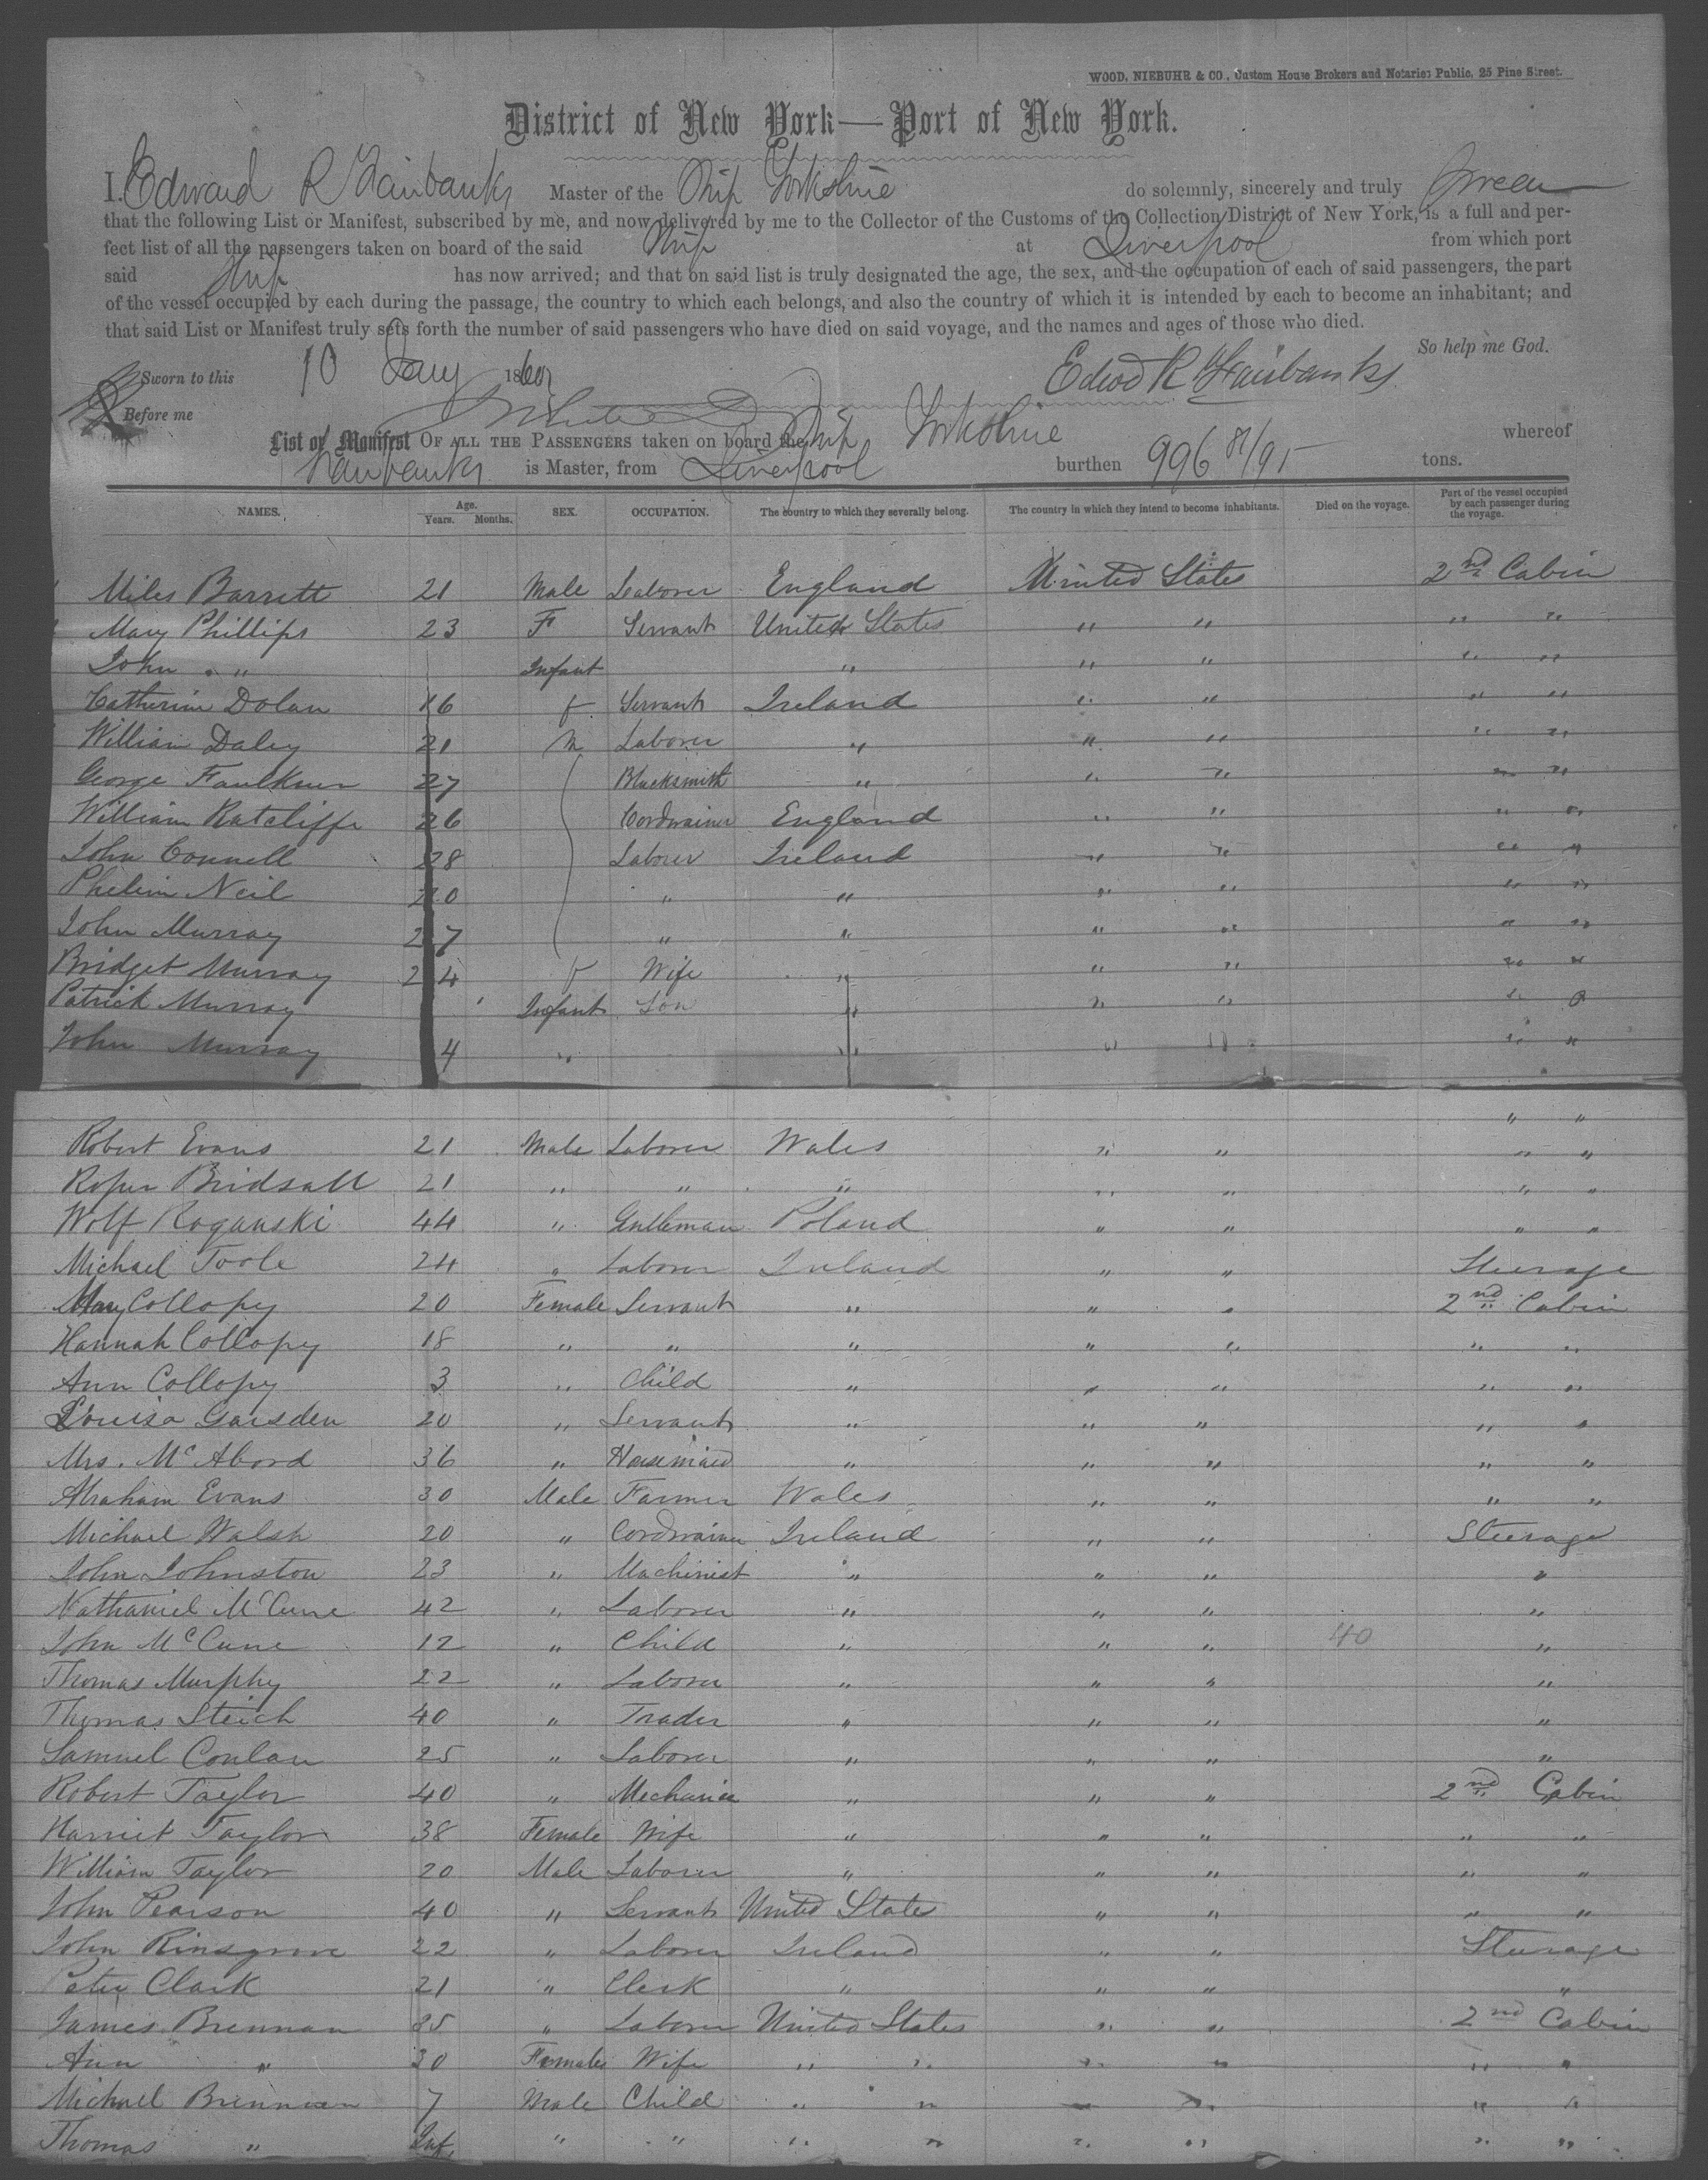 WOOD, NIEBUHR & CO., Custom House Brokers and Notaries Public, 25 Pine Street.
District of New York—Port of New York.
I, Edward R Fairbanks Master of the Ship Yorkshire do solemnly, sincerely and truly Swear
that the following List or Manifest, subscribed by me, and now delivered by me to the Collector of the Customs of the Collection District of New York, is a full and per-
fect list of all the passengers taken on board of the said Ship at Liverpool from which port
said Ship has now arrived; and that on said list is truly designated the age, the sex, and the occupation of each of said passengers, the part
of the vessel occupied by each during the passage, the country to which each belongs, and also the country of which it is intended by each to become an inhabitant; and
that said List or Manifest truly sets forth the number of said passengers who have died on said voyage, and the names and ages of those who died.
So help me God.
Sworn to this 10 Jany 1860 Edwd R Fairbanks
Before me
List or Manifest OF ALL THE PASSENGERS taken on board the Ship Yorkshire whereof
Fairbanks is Master, from Liverpool burthen 996 81/95 tons.
NAMES. Age. Years. Months. SEX. OCCUPATION. The country to which they severally belong. The country in which they intend to become inhabitants. Died on the voyage. Part of the vessel occupied by each passenger during the voyage.
Miles Barrett 21 Male Laborer England United States 2nd Cabin
Mary Phillips 23 F Servant United States " " " "
John " Infant " " " " "
Catherine Dolan 16 f Servant Ireland " " " "
William Daley 21 m Laborer " " " " "
George Faulkner 27 Blacksmith " " " " "
William Ratcliffe 26 Cordwainer England " " " "
John Connell 28 Laborer Ireland " " " "
Phelim Neil 20 " " " " " "
John Murray 27 " " " " " "
Bridget Murray 24 f Wife " " " " "
Patrick Murray Infant Son " " " " "
John Murray 4 " " " " " "
" "
Robert Evans 21 Male Laborer Wales " " " "
Roper Bridsall 21 " " " " " " "
Wolf Roganski 44 " Gentleman Poland " " " "
Michael Toole 24 " Laborer Ireland " " Steerage
Mary Collopy 20 Female Servant " " " 2nd Cabin
Hannah Collopy 18 " " " " " " "
Ann Collopy 3 " Child " " " " "
Louisa Garsden 20 " Servant " " " " "
Mrs. McAbord 36 " Housemaid " " " " "
Abraham Evans 30 Male Farmer Wales " " " "
Michael Walsh 20 " Cordwainer Ireland " " Steerage
John Johnston 23 " Machinist " " " "
Nathaniel McCune 42 " Laborer " " " "
John McCune 12 " Child " " " 40 "
Thomas Murphy 22 " Laborer " " " "
Thomas Steich 40 " Trader " " " "
Samuel Conlan 25 " Laborer " " " "
Robert Taylor 40 " Mechanic " " " 2nd Cabin
Harriet Taylor 38 Female Wife " " " " "
William Taylor 20 Male Laborer " " " " "
John Pearson 40 " Servant United States " " " "
John Rinsgrove 22 " Laborer Ireland " " Steerage
Peter Clark 21 " Clerk " " " "
James Brennan 35 " Laborer United States " " 2nd Cabin
Ann " 30 Female Wife " " " " " "
Michael Brennan 7 Male Child " " " " " "
Thomas " Inf. " " " " " " " "